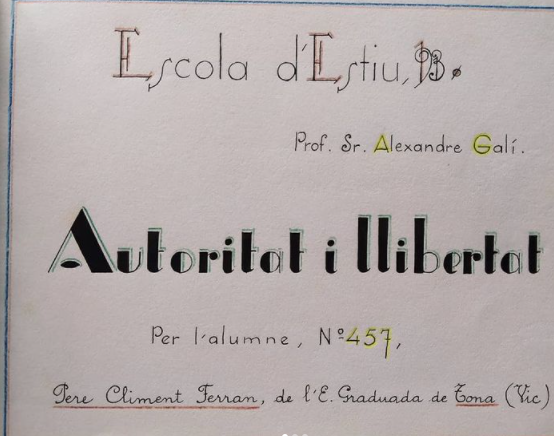 Escola d'Estiu,
Prof. Sr. Alexandre Galí.
Autoritat i llibertat
Per l'alumne, Nº 457,
Pere Climent Ferran, de l'E. Graduada de Tona (Vic)